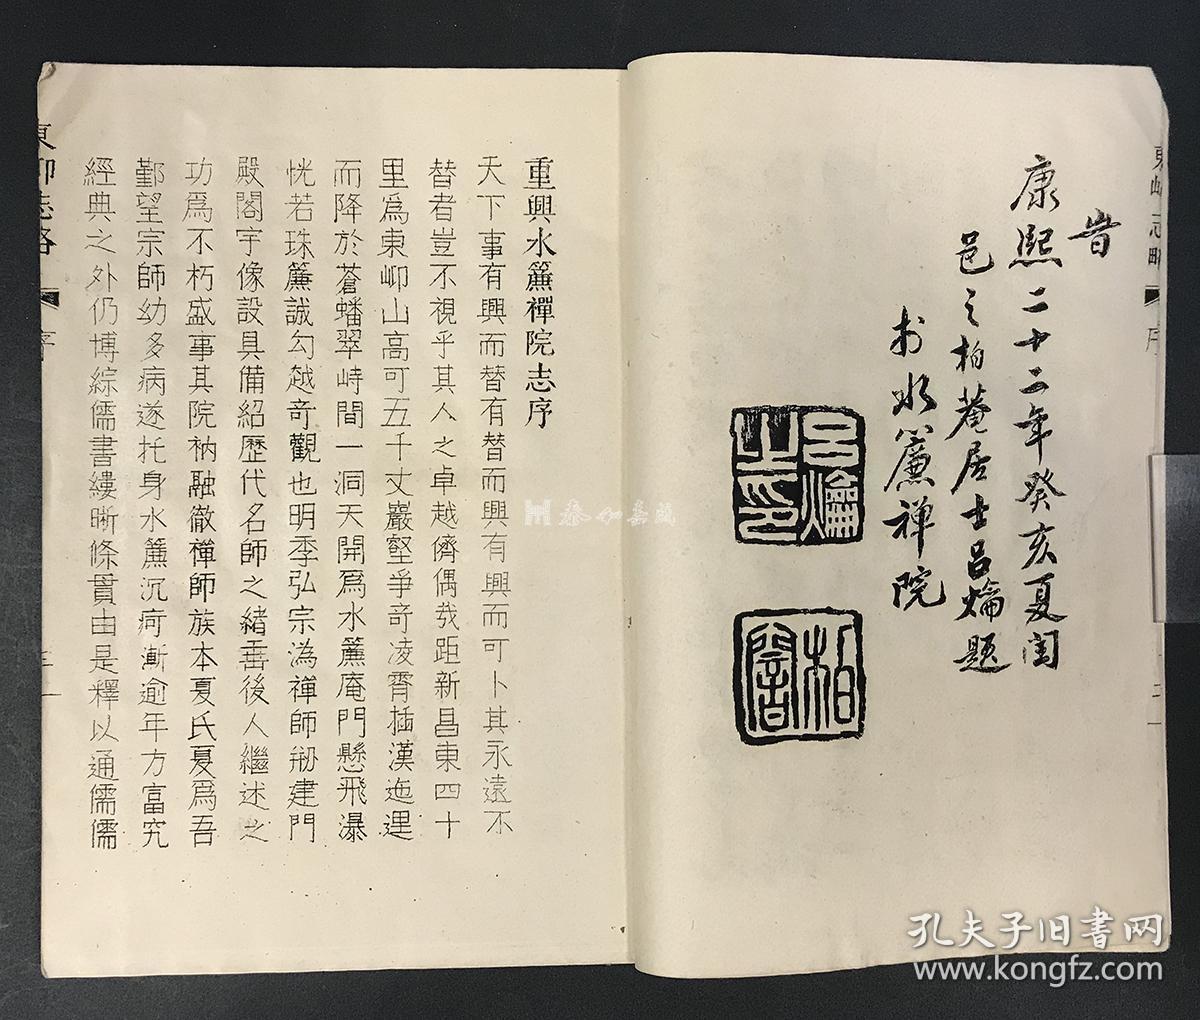 旹
康熙二十二年癸亥夏閏
邑之柏菴居士呂爚題
於水簾禅院
呂爚之印
柏菴
東岇志略
序
重興水簾禪院志序
天下事有興而替有替而興有興而可卜其永遠不
替者豈不視乎其人之卓越儕偶哉距新昌東四十
里爲東岇山高可五千丈巖壑爭竒凌霄插漢迤逕
而降於蒼蟠翠峙間一洞天開爲水簾庵門懸飛瀑
恍若珠簾誠勾越竒觀也明季弘宗溈禪師剏建門
殿閣宇像設具備紹歷代名師之緒垂後人繼述之
功爲不朽盛事其院衲融徹禪師族本夏氏夏爲吾
鄞望宗師幼多病遂托身水簾沉疴漸逾年方富究
經典之外仍博綜儒書縷晰條貫由是釋以通儒儒
東岇志略
序
泰和嘉成
孔夫子旧书网
www.kongfz.com